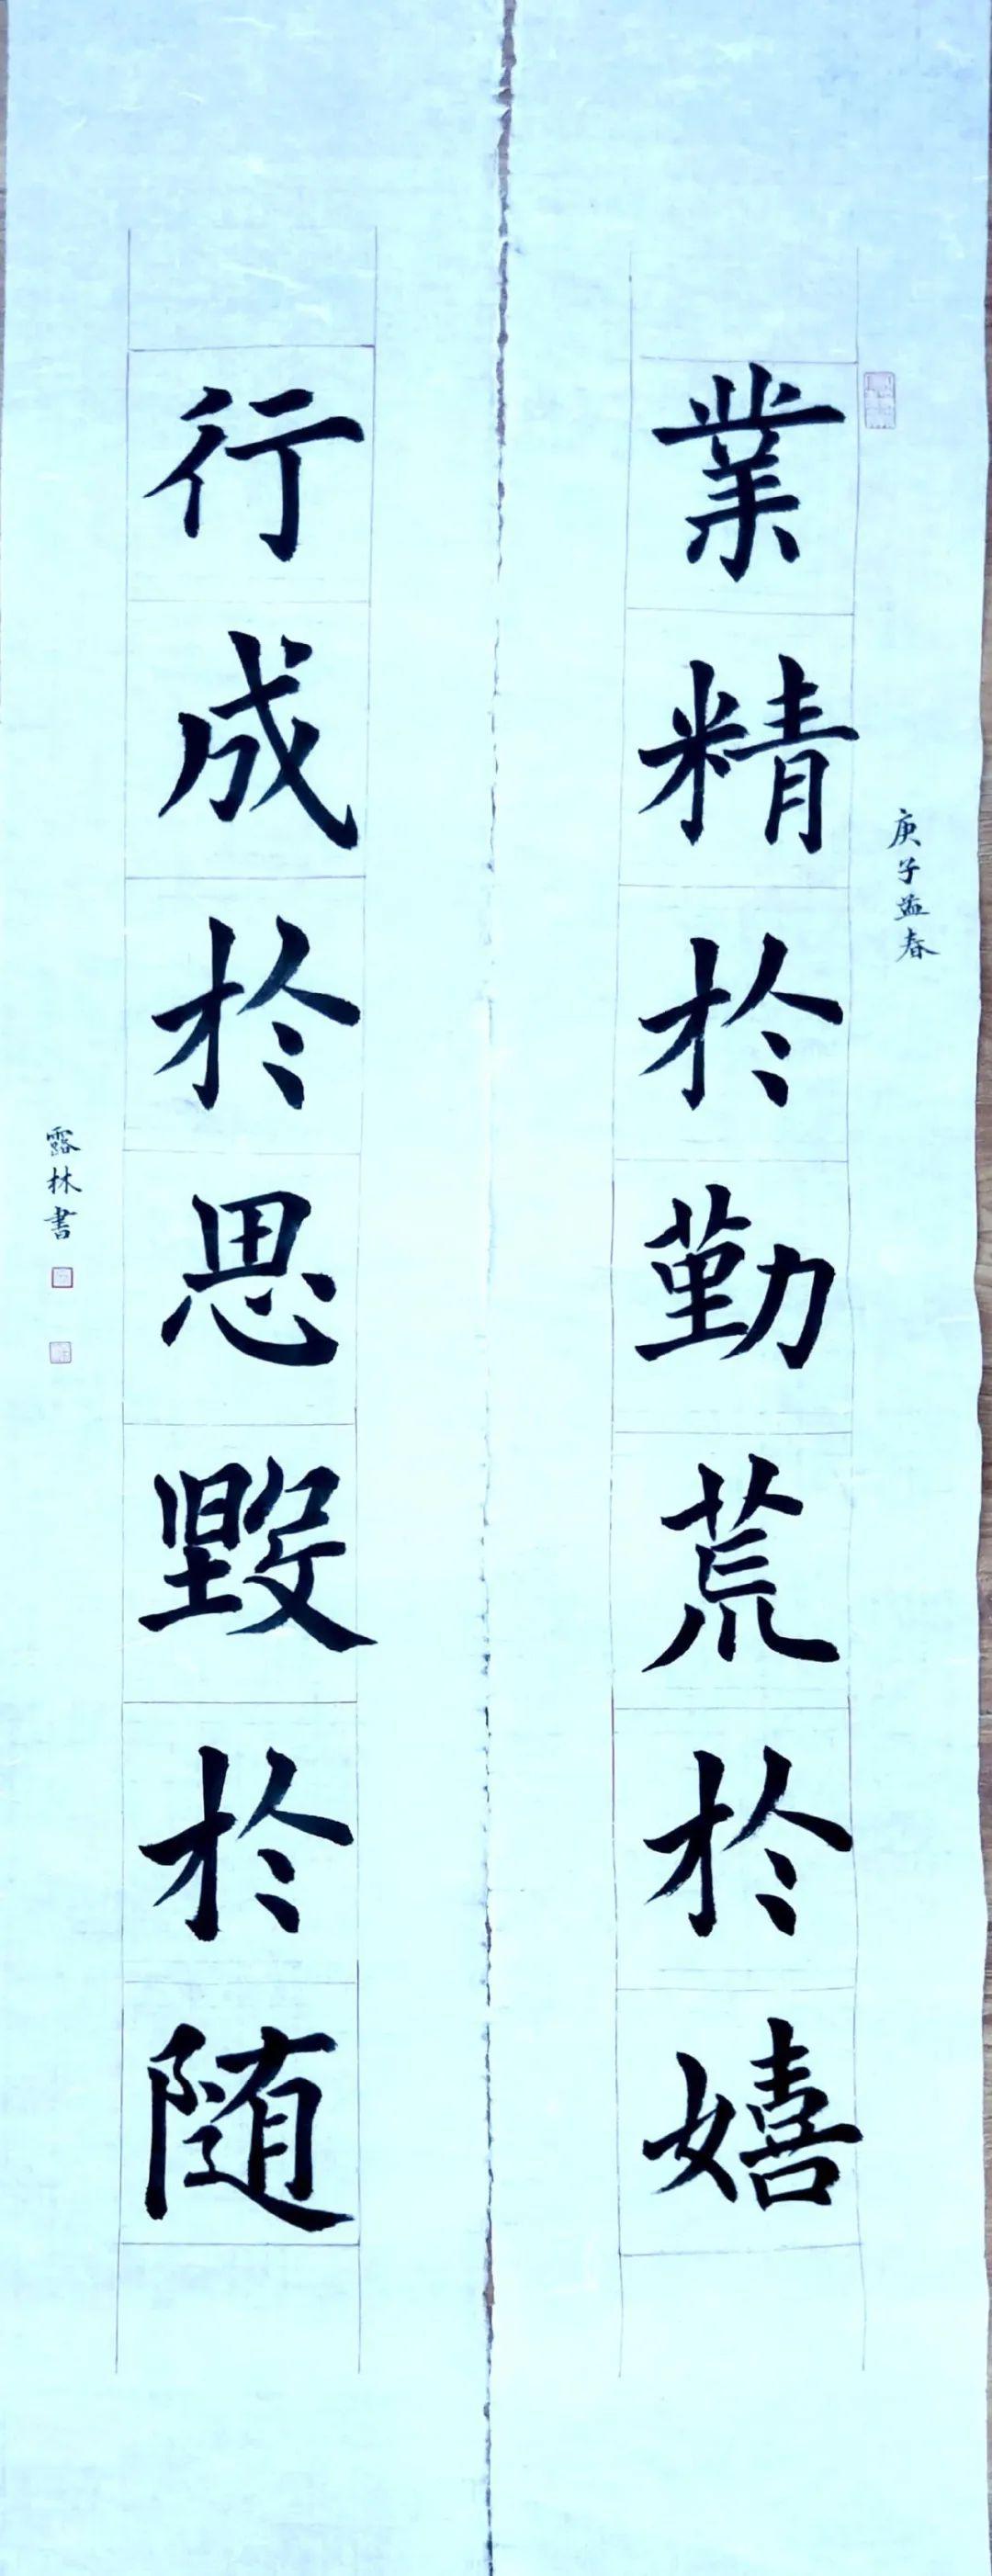 業精於勤荒於嬉
庚子孟春
行成於思毀於随
露林書